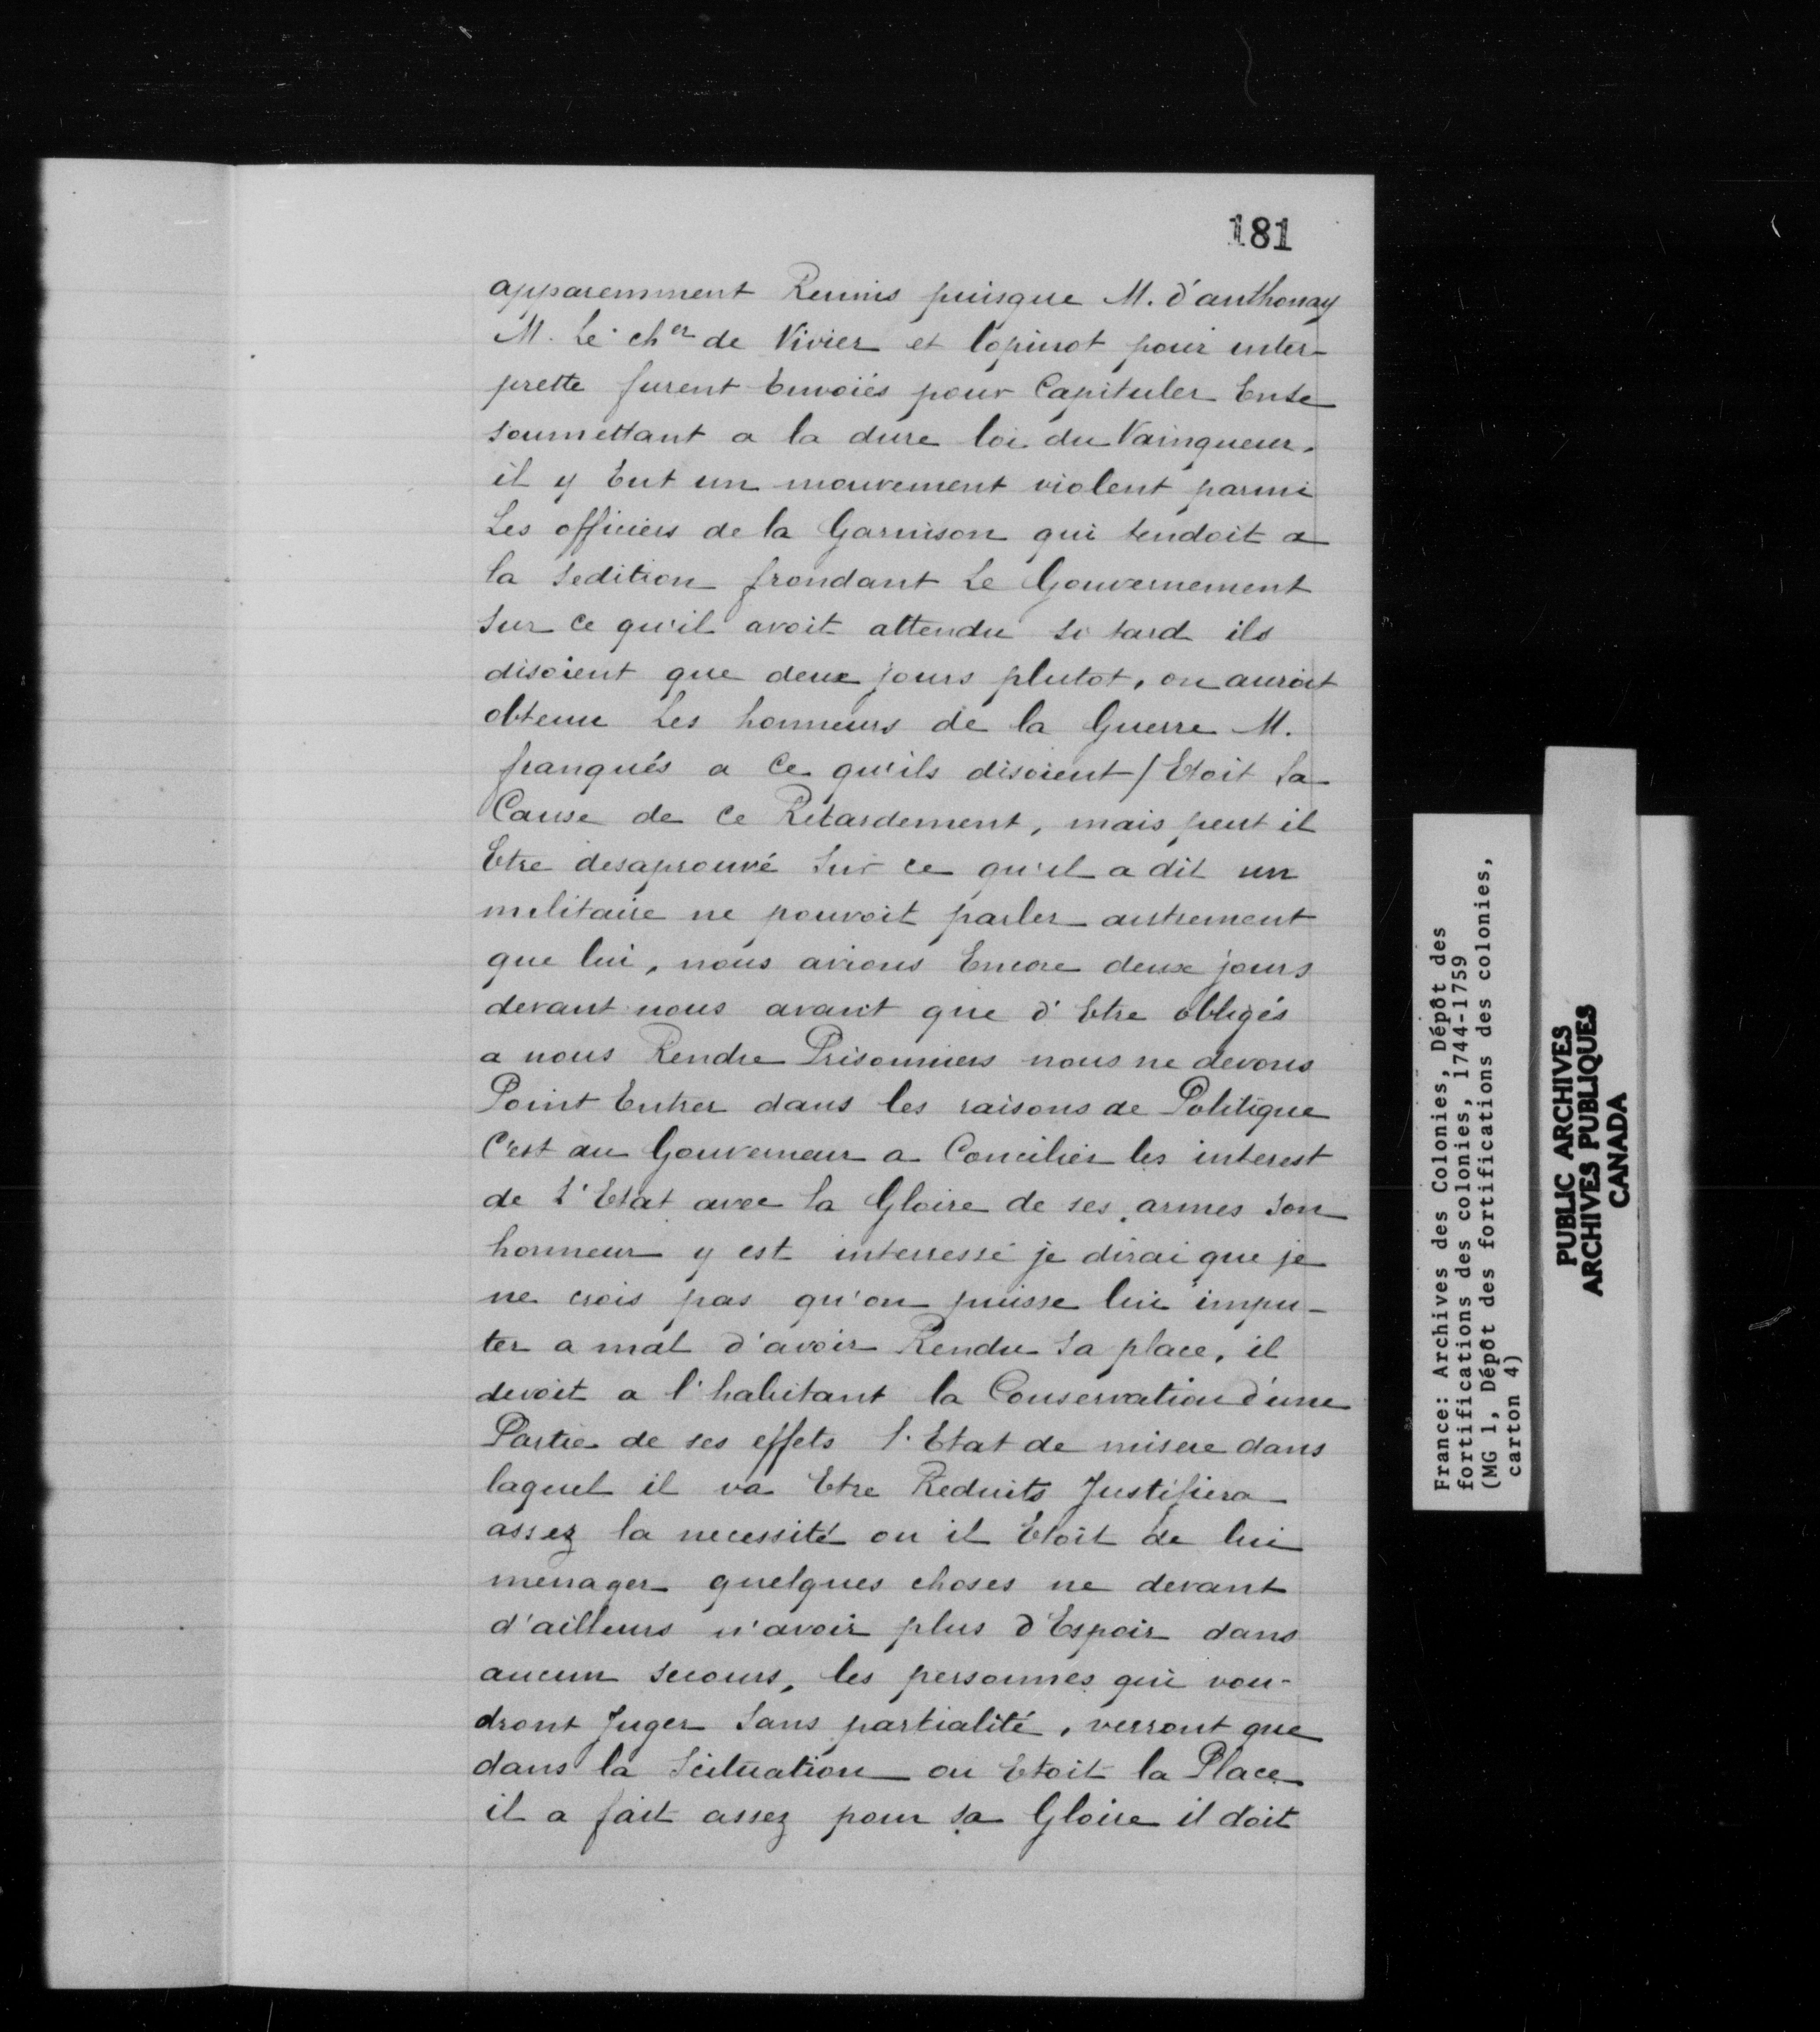 181
apparemment Reunis puisque M. d'anthonay
M. Le cher de Vivier et lopinot pour inter-
prette furent Envoiés pour Capituler Ense
soumettant a la dure loi du Vainqueur.
il y Eut un mouvement violent parmi
Les officiers de la Garnison qui tendoit a
la sedition frondant Le Gouvernement
sur ce qu'il avoit attendu si tard ils
disoient que deux jours plutot, on auroit
obtenu Les honneurs de la Guerre M.
franqués a Ce qu'ils disoient / Etoit la
Cause de Ce Retardement, mais peut il
Etre desaprouvé Sur ce qu'il a dit un
militaire ne pouvoit parler autrement
que lui, nous avions Encore deux jours
devant nous avant que d'Etre obligés
a nous Rendre Prisonniers nous ne devons
Point Entrer dans les raisons de Politique
C'est au Gouverneur a Concilier les interest
de L'Etat avec la Gloire de ses armes son
honneur y est interressé je dirai que je
ne crois pas qu'on puisse lui impu-
ter a mal d'avoir Rendu Sa place, il
devoit a l'habitant la Conservation d'une
Partie de ses effets l'Etat de misere dans
laquel il va Etre Reduits Justifiera
assez la necessité ou il Etoit de lui
menager quelques choses ne devant
d'ailleurs n'avoir plus d'Espoir dans
aucun secours, les personnes qui vou-
dront Juger Sans partialité, verront que
dans la Scituation ou Etoit la Place
il a fait assez pour sa Gloire il doit
France: Archives des Colonies, Dépôt des
fortifications des colonies, 1744-1759
(MG 1, Dépôt des fortifications des colonies,
carton 4)
PUBLIC ARCHIVES
ARCHIVES PUBLIQUES
CANADA